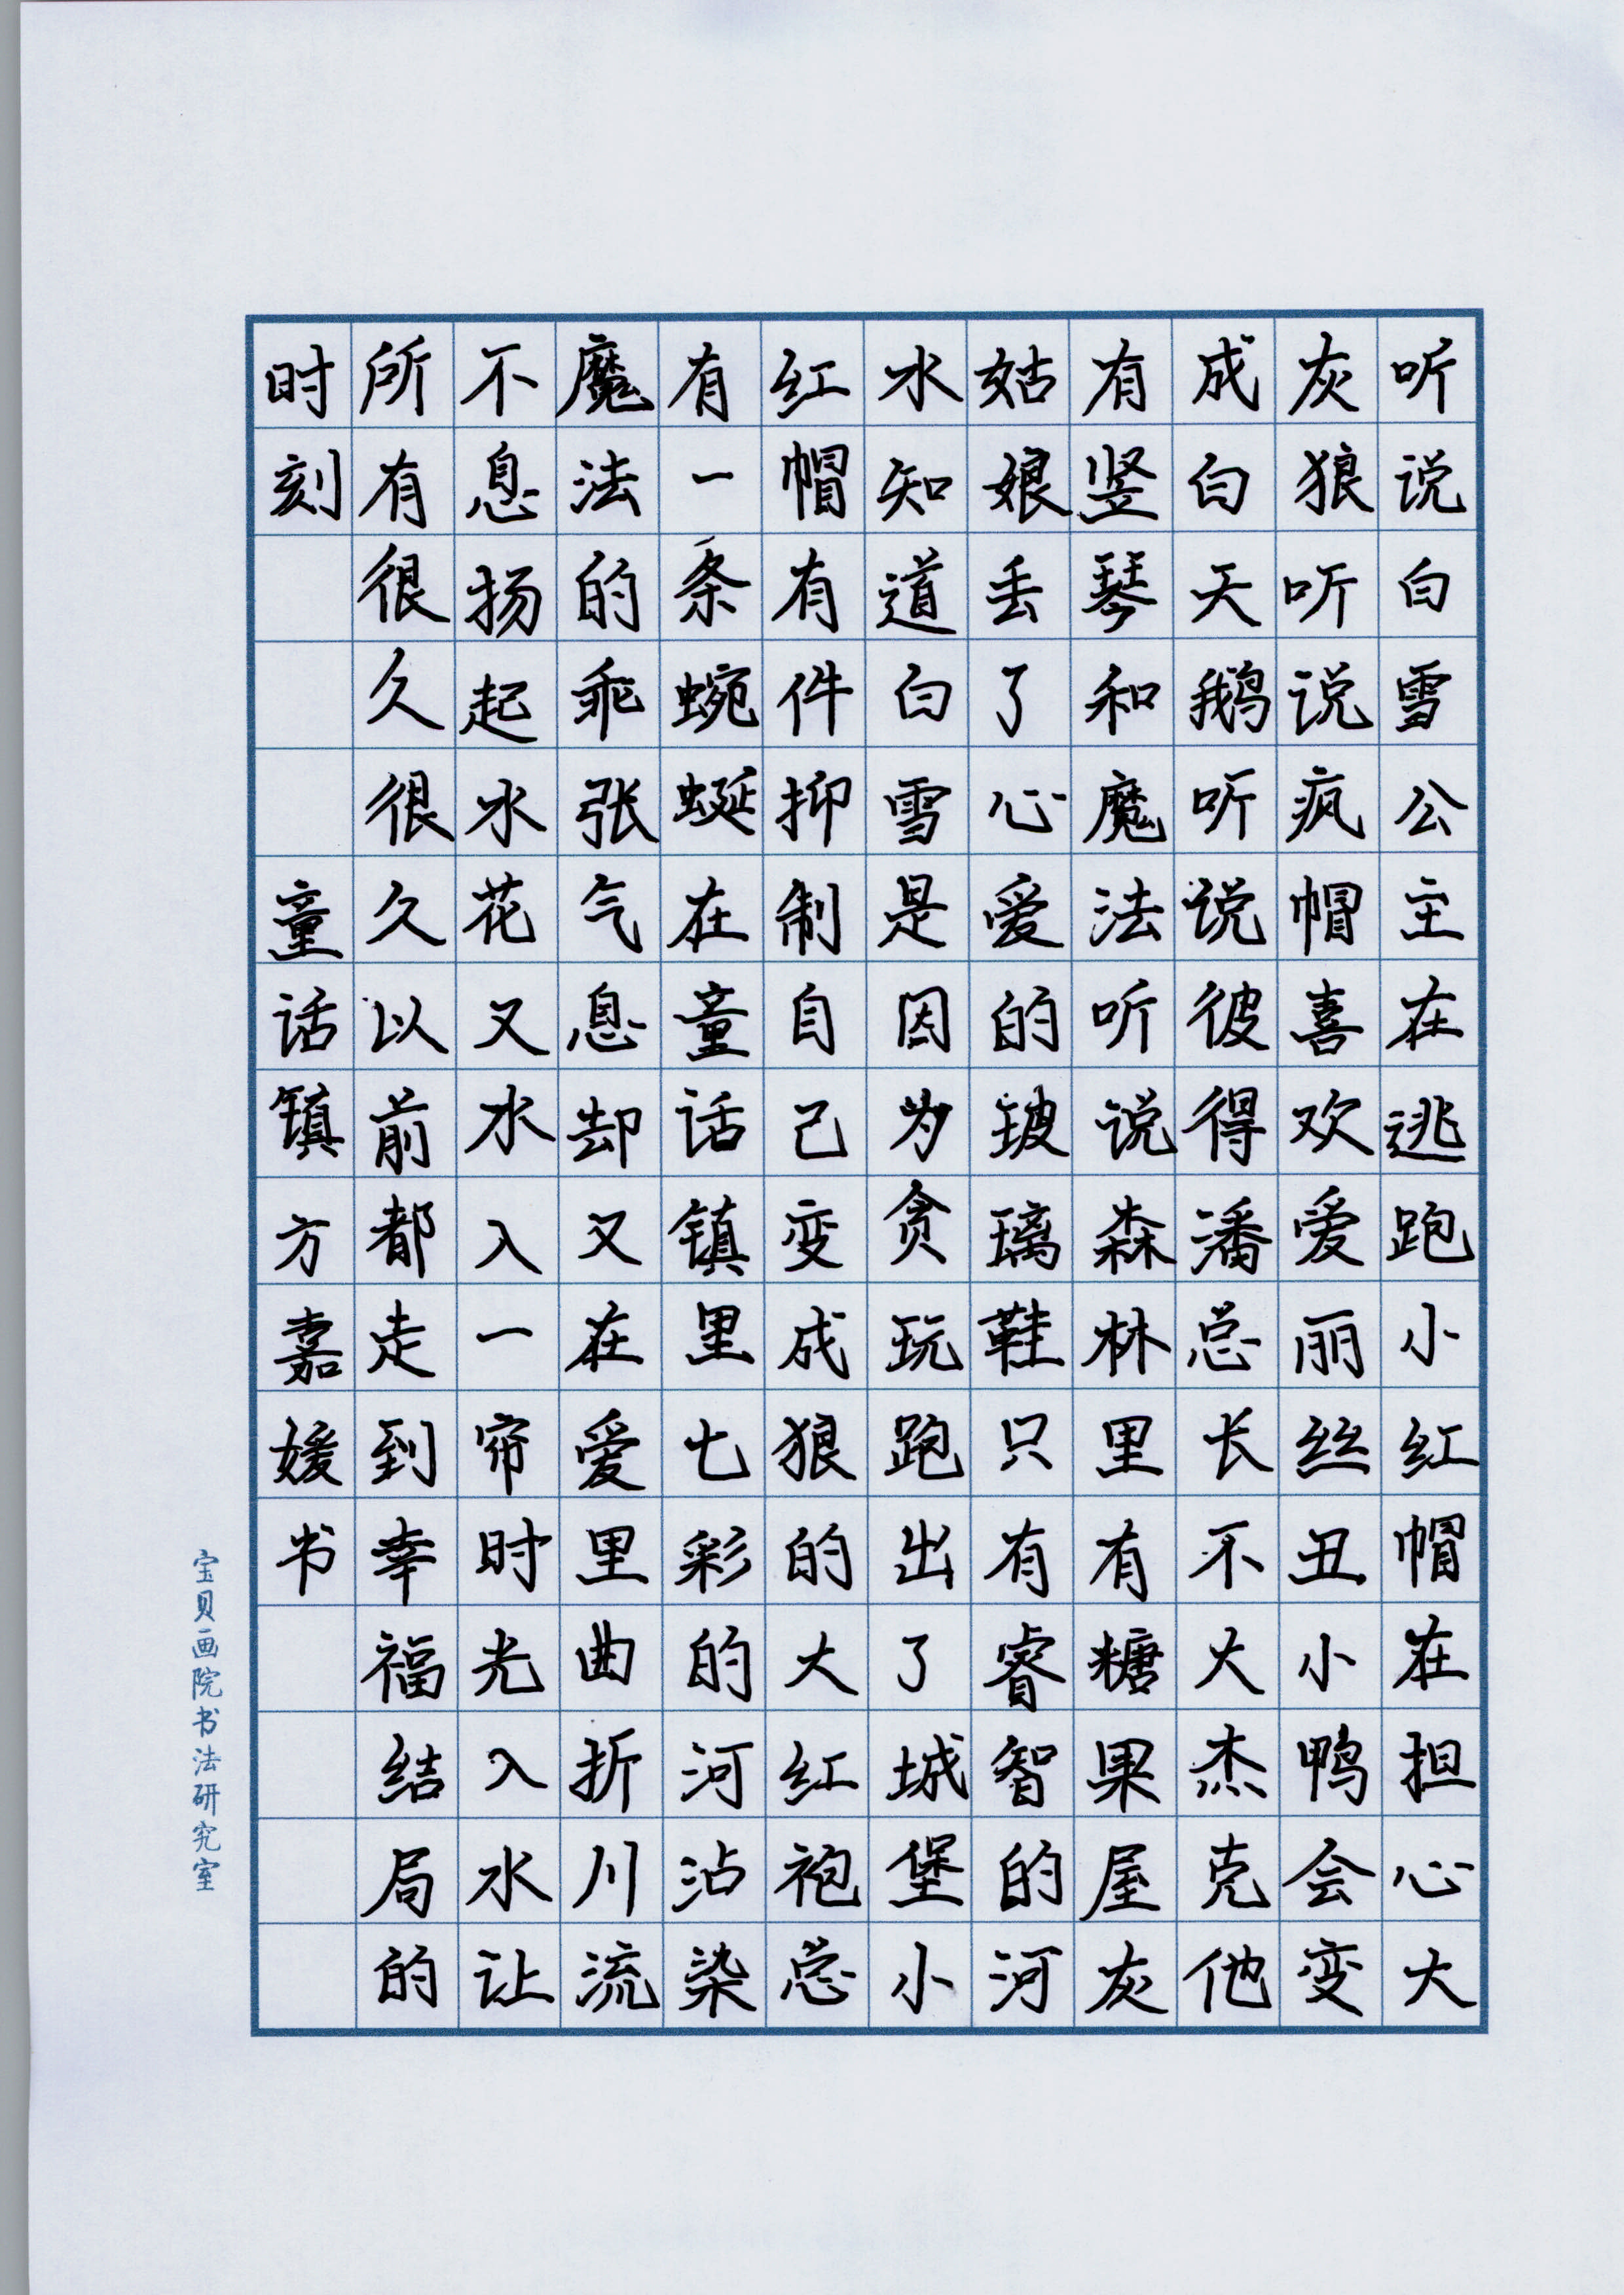 听说白雪公主在逃跑小红帽在担心大
灰狼听说疯帽喜欢爱丽丝丑小鸭会变
成白天鹅听说彼得潘总长不大杰克他
有竖琴和魔法听说森林里有糖果屋灰
姑娘丢了心爱的玻璃鞋只有睿智的河
水知道白雪是因为贪玩跑出了城堡小
红帽有件抑制自己变成狼的大红袍总
有一条蜿蜒在童话镇里七彩的河沾染
魔法的乖张气息却又在爱里曲折川流
不息扬起水花又水入一帘时光入水让
所有很久很久以前都走到幸福结局的
时刻
童话镇方嘉媛书
宝贝画院书法研究室